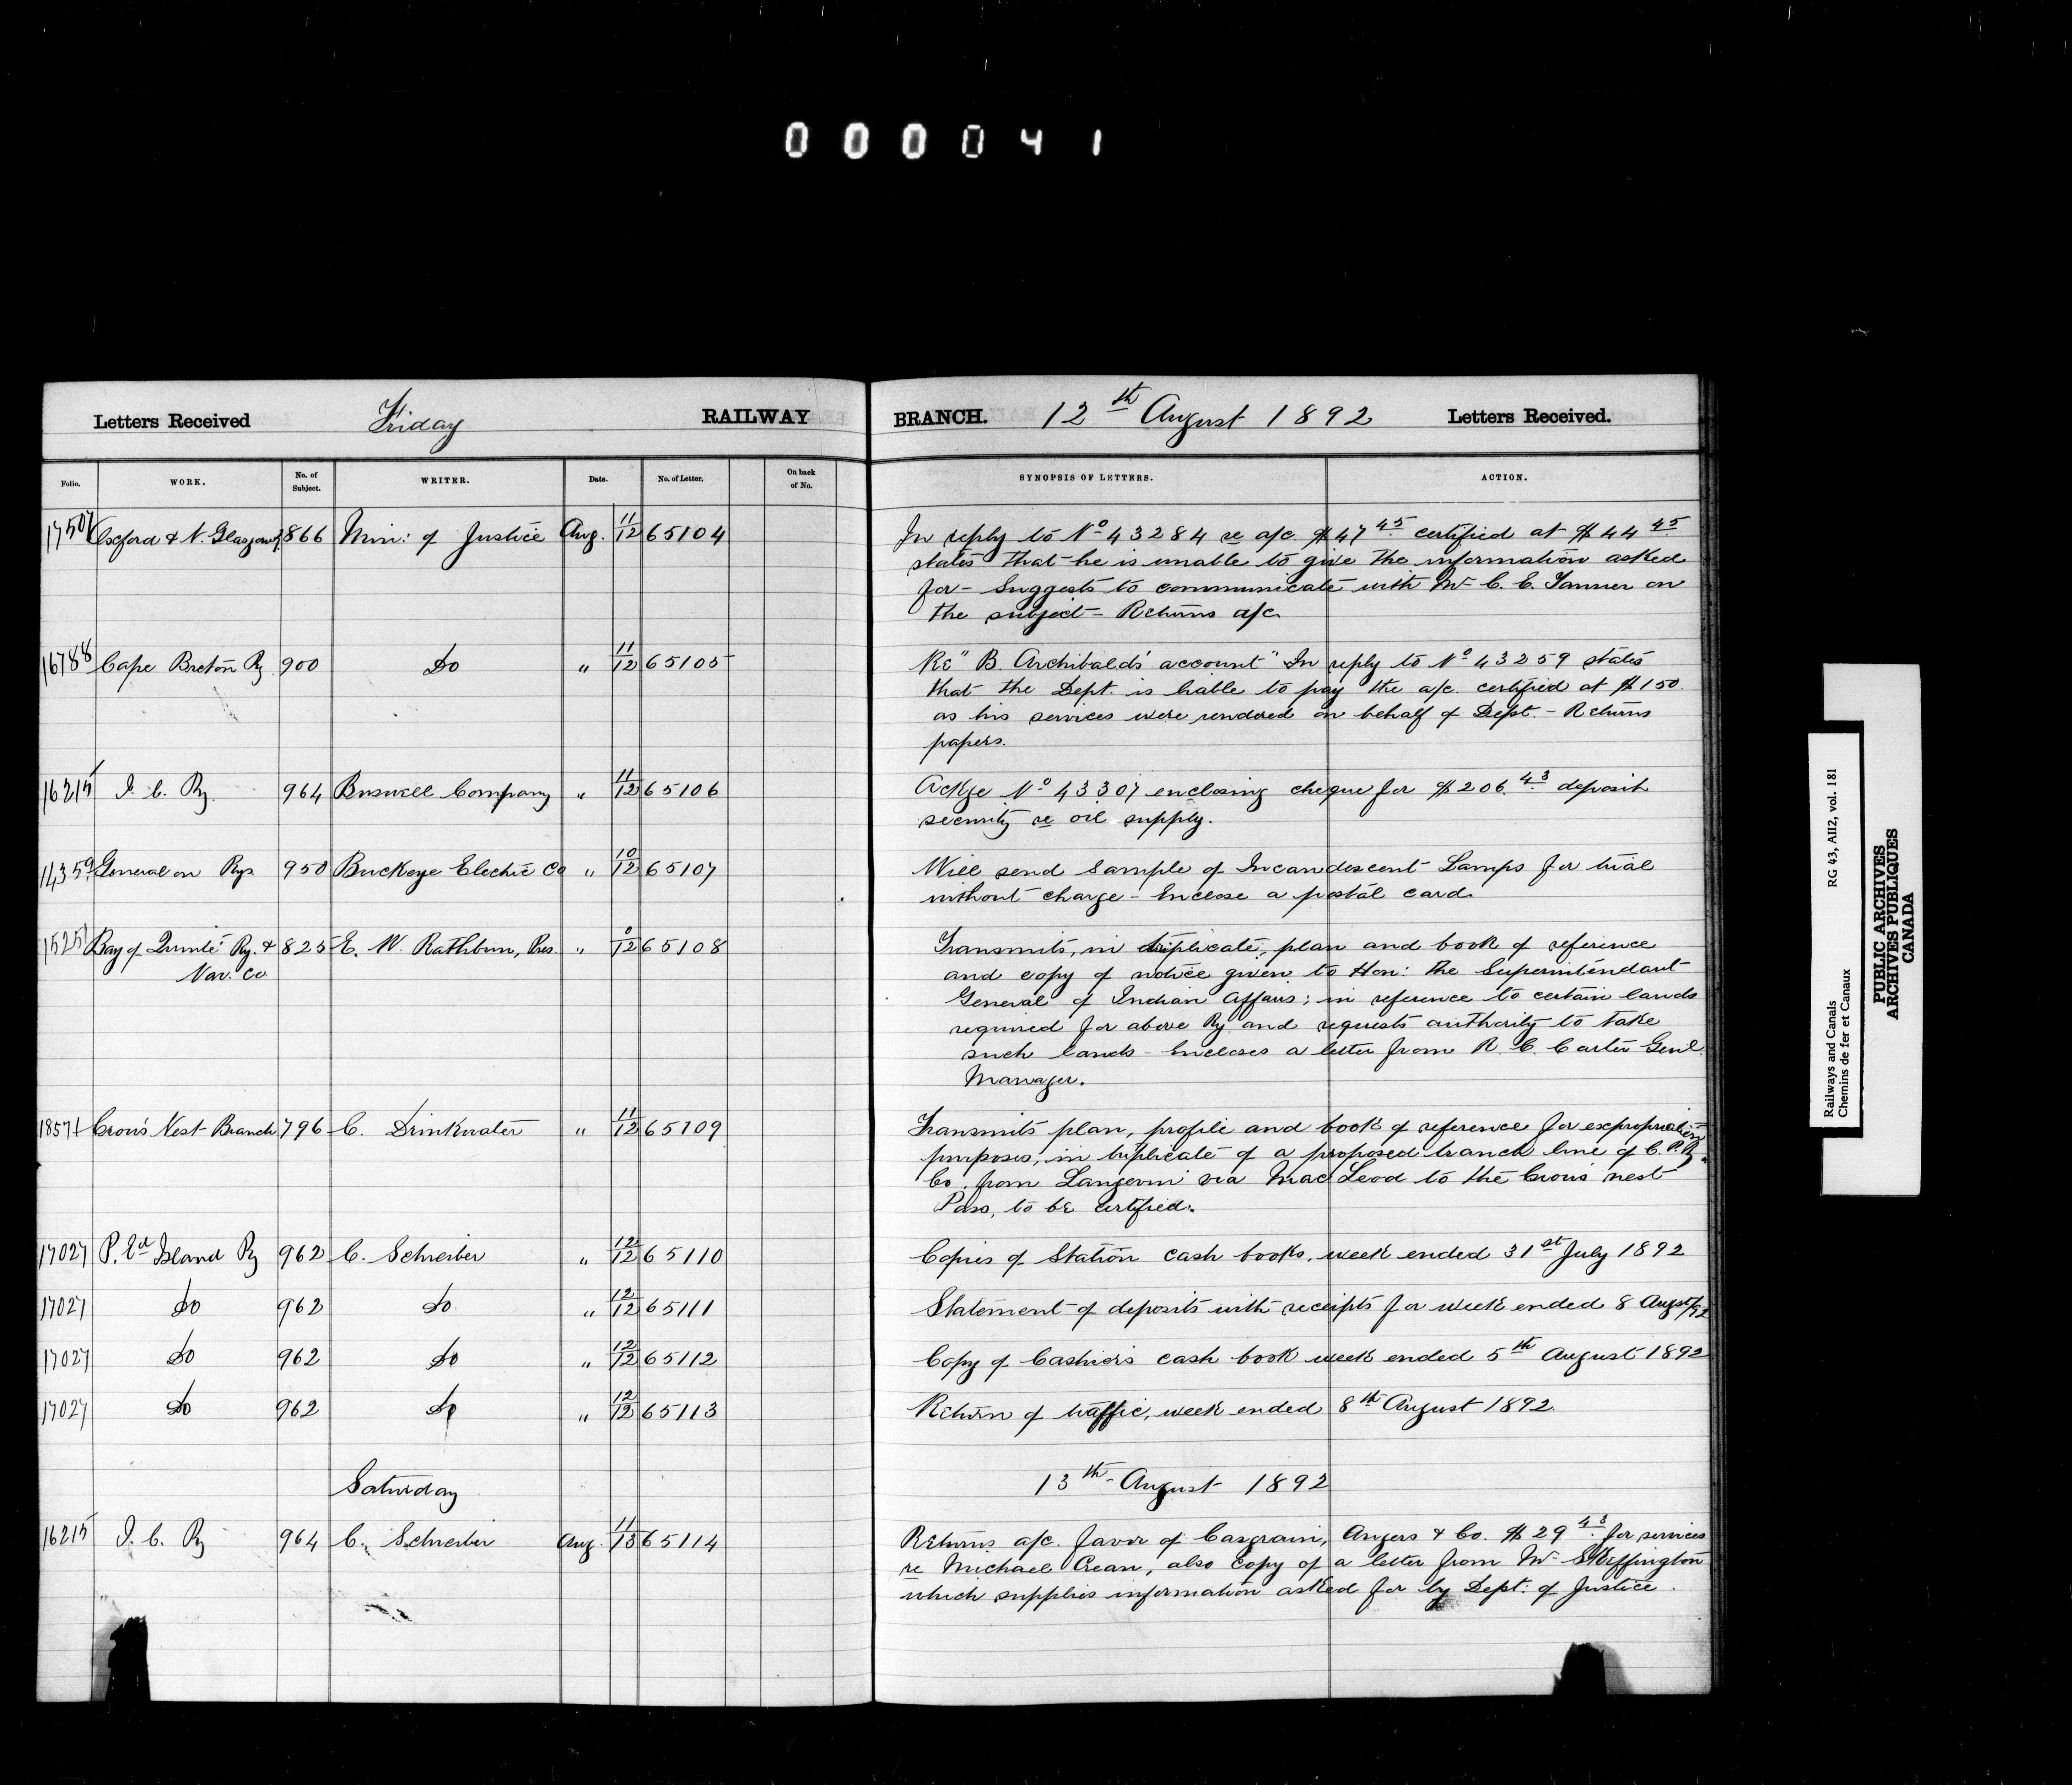 000041
Letters Received Friday RAILWAY BRANCH. 12th August 1892 Letters Received.
Folio. WORK. No. of Subject. WRITER. Date. No. of Letter. On back of No. SYNOPSIS OF LETTERS. ACTION.
17507 Oxford & N. Glasgow 866 Min: of Justice Aug. 11/12 65104 In reply to No 43284 re a/c. $47 45 certified at $44 45
states that he is unable to give the information asked
for - Suggests to communicate with Mr C. E. Tanner on
the subject - Returns a/c.
16788 Cape Breton Ry 900 Do " 11/12 65105 Re "B. Archibald's account" In reply to No 43259 states
that the Dept. is liable to pay the a/c. certified at $150.
as his services were rendered on behalf of Dept. - Returns
papers.
16215 I. C. Ry. 964 Buswell Company " 11/12 65106 Ackge No 43307 enclosing cheque for $206.43 deposit
security re oil supply.
14359 General on Rys 950 Buckeye Electric Co " 10/12 65107 Will send Sample of Incandescent Lamps for trial
without charge - Enclose a postal card.
15251 Bay of Quinté Ry. & 825 E. W. Rathbun, Pres. " /12 65108 Transmits, in triplicate, plan and book of reference
Nav. Co and copy of notice given to Hon: the Superintendant
General of Indian Affairs; in reference to certain lands
required for above Ry. and requests authority to take
such lands - Encloses a letter from R. C. Carter Genl.
Manager.
18571 Crow's Nest Branch 796 C. Drinkwater " 11/12 65109 Transmits plan, profile and book of reference for expropriation
purposes, in triplicate of a proposed branch line of C. P. R.
Co. from Langevin via MacLeod to the Crow's nest
Pass, to be certified.
17027 P. Ed Island Ry 962 C. Schreiber " 12/12 65110 Copies of Station cash books, week ended 31st July 1892
17027 Do 962 Do " 12/12 65111 Statement of deposits with receipts for week ended 8 Augst/92
17027 Do 962 Do " 12/12 65112 Copy of Cashier's cash book week ended 5th August 1892
17027 Do 962 Do " 12/12 65113 Return of traffic, week ended 8th August 1892.
Saturday 13th August 1892
16215 I. C. Ry 964 C. Schreiber Aug. 11/13 65114 Returns a/c. favor of Casgrain, Angers & Co. $29 43 for services
re Michael Crean, also copy of a letter from Mr Skeffington
which supplies information asked for by Dept: of Justice.
Railways and Canals RG 43, AII2, vol. 181
Chemins de fer et Canaux
PUBLIC ARCHIVES
ARCHIVES PUBLIQUES
CANADA